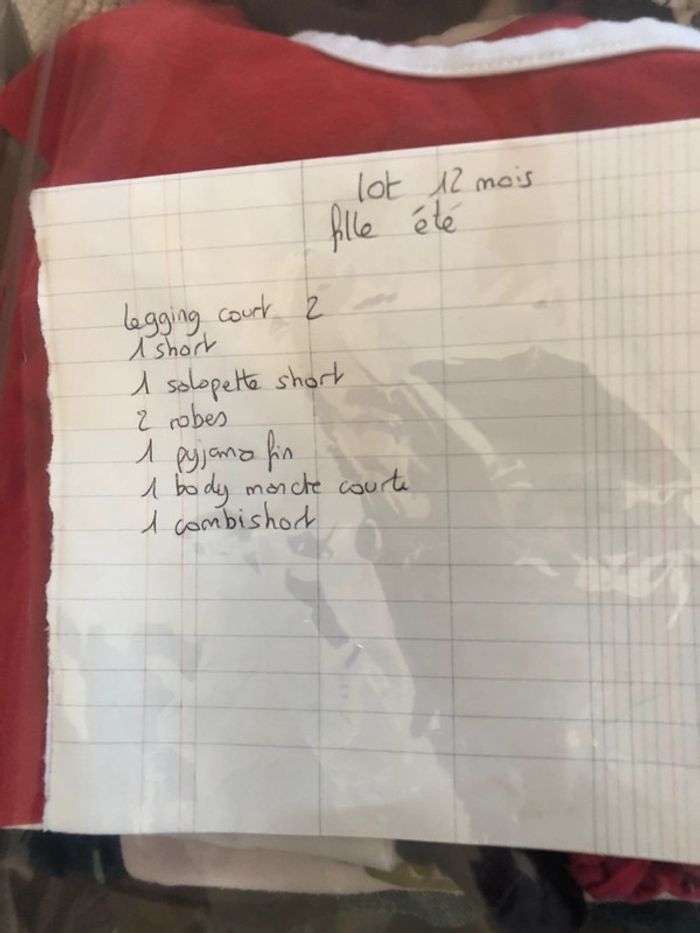 lot 12 mois
fille été
legging court 2
1 short
1 salopette short
2 robes
1 pyjama fin
1 body manche courte
1 combishort